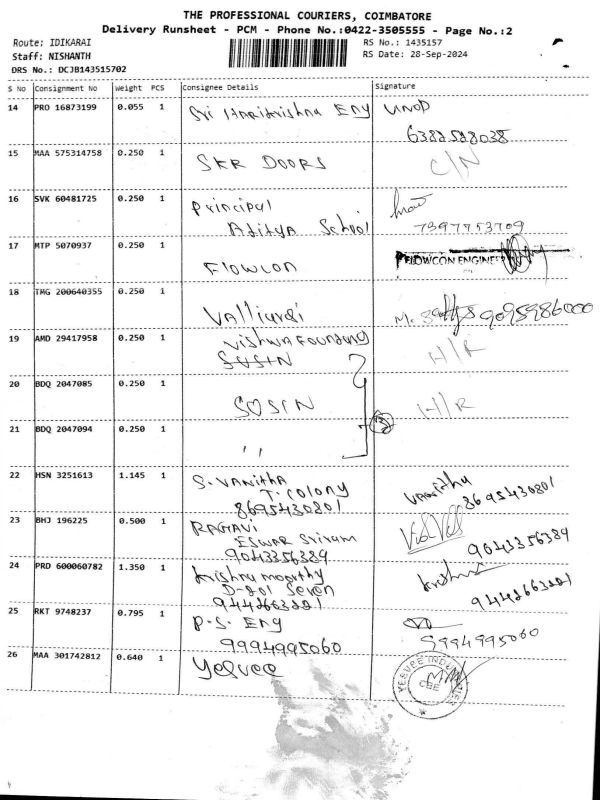 THE PROFESSIONAL COURIERS, COIMBATORE
Delivery Runsheet - PCM - Phone No.:0422-3505555 - Page No.:2
Route: IDIKARAI
RS No.: 1435157
Staff: NISHANTH
RS Date: 28-Sep-2024
DRS No.: DCJB143515702
S No Consignment No Weight PCS Consignee Details Signature
14 PRO 16873199 0.055 1 Sri Harikrishna Eng
6382528038
15 MAA 575314758 0.250 1 SKR DOORS C/N
16 SVK 60481725 0.250 1 Principal
Aditya School 7397753709
17 MTP 5070937 0.250 1 Flowcon FLOWCON ENGINEER
18 TMG 200640355 0.250 1 Valliyurai 9095986000
19 AMD 29417958 0.250 1 Vishwa Founding H/R
SUSIN
20 BDQ 2047085 0.250 1 SOSIN H/R
21 BDQ 2047094 0.250 1 ,,
22 HSN 3251613 1.145 1 S. VANITHA
T. Colony Vanitha
8695430801 8695430801
23 BHJ 196225 0.500 1 RAGAVI
ESWAR Sriram
9043356389 9043356389
24 PRD 600060782 1.350 1 Krishna moorthy
D-201 Seven Krishna
9442663221 9442663221
25 RKT 9748237 0.795 1 P.S. Eng
9994995060 9994995060
26 MAA 301742812 0.640 1 Yesvee
YESVEE INDUSTRIES
CBE